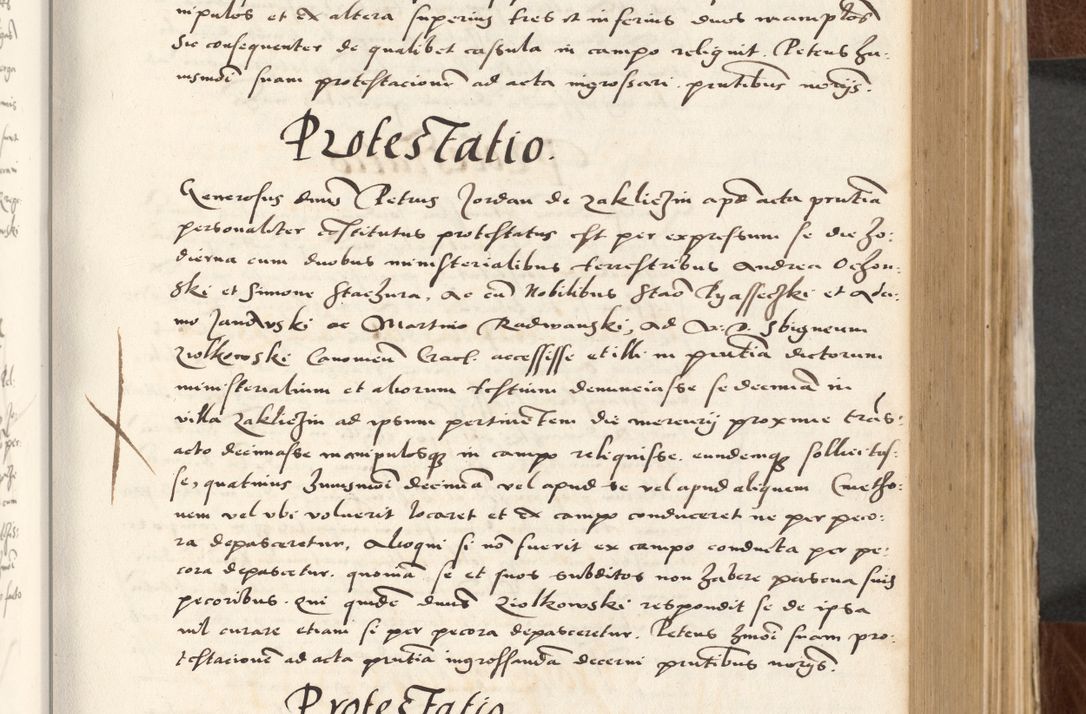 nipulos et ex altera superius tres et inferius duos manipulos
Sic consequenter de qualibet cassula in campo reliquit. Petens hu-
iusmodi suam protestacionem ad acta ingrossari. prntibus notarijs.
Protestatio.
Generosus dnus Petrus Jordan de Zakliczin apd acta prntia
personaliter constitutus protestatus est per expressum se die ho-
dierna cum duobus ministerialibus terrestribus Andrea Oczon-
ski et Simone Staczura, Ac cu Nobilibus Stao et Ada-
mo Janowski ac Martino Radwanski, Ad V. D. Sbigneum
Ziolkowski Canonicu Crac. accessisse et illi in prntia dictorum
ministerialium et aliorum testium denunciasse se decimā in
villa Zakliczin ad ipsum pertinentem die mercurij proxime trans-
acto decimasse manipulosq in campo reliquisse. eundemq sollicitas-
se, quatinus huiusmoi decimā vel apud se vel apud aliquem Cmetho-
nem vel ubi voluerit locaret et ex campo conduceret ne per peco-
ra depasceretur, Alioqui si no fuerit ex campo conducta per pe-
cora depascetur. quoniā se et suos subditos non habere pascua suis
pecoribus. Qui quide dnus Ziolkowski respondit se de ipsa
nil curare etiam si per pecora depasceretur. Petens hmoi suam pro-
testacione ad acta prntia ingrossandā decerni prntibus notarijs.
Protestatio